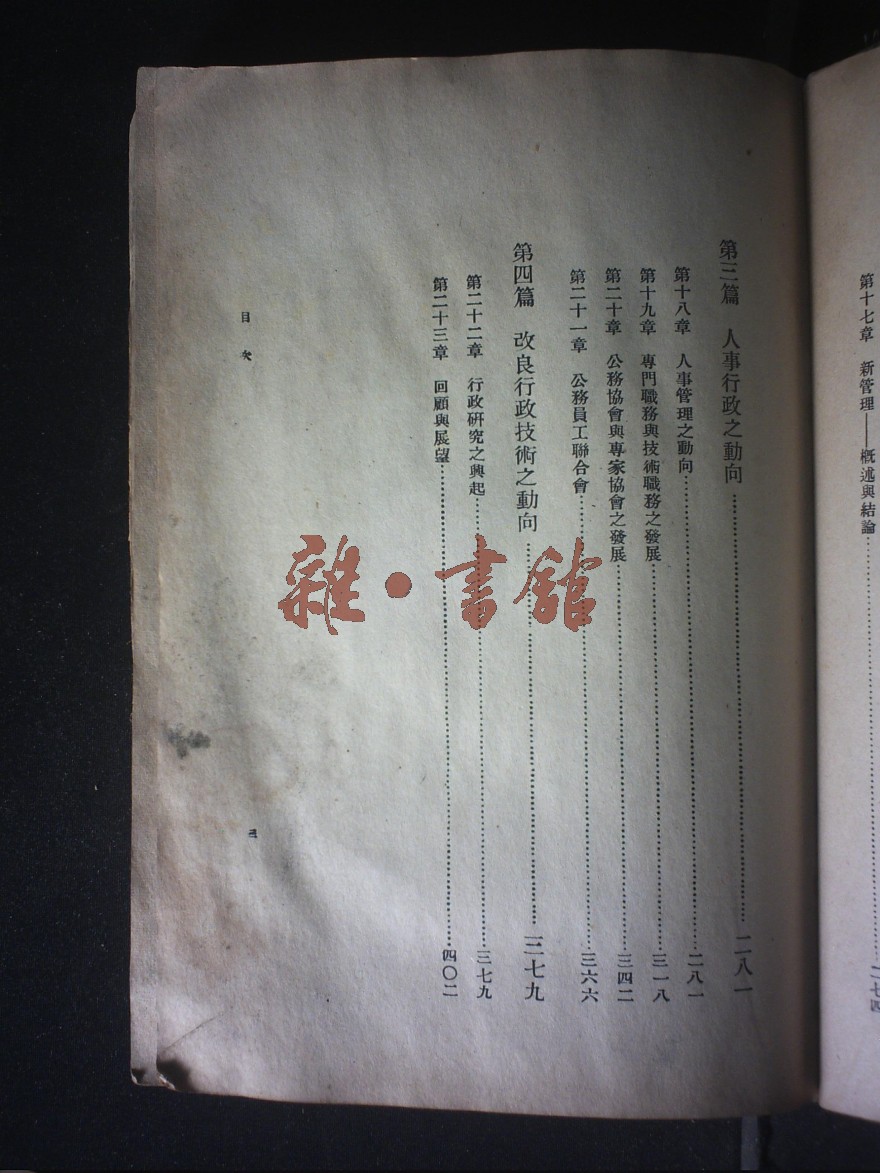 第十七章　新管理——概述與結論……二七四
第三篇　人事行政之動向……二八一
第十八章　人事管理之動向……二八一
第十九章　專門職務與技術職務之發展……三一八
第二十章　公務協會與專家協會之發展……三四二
第二十一章　公務員工聯合會……三六六
第四篇　改良行政技術之動向……三七九
第二十二章　行政研究之興起……三七九
第二十三章　回顧與展望……四〇二
目次
三
雜·書館